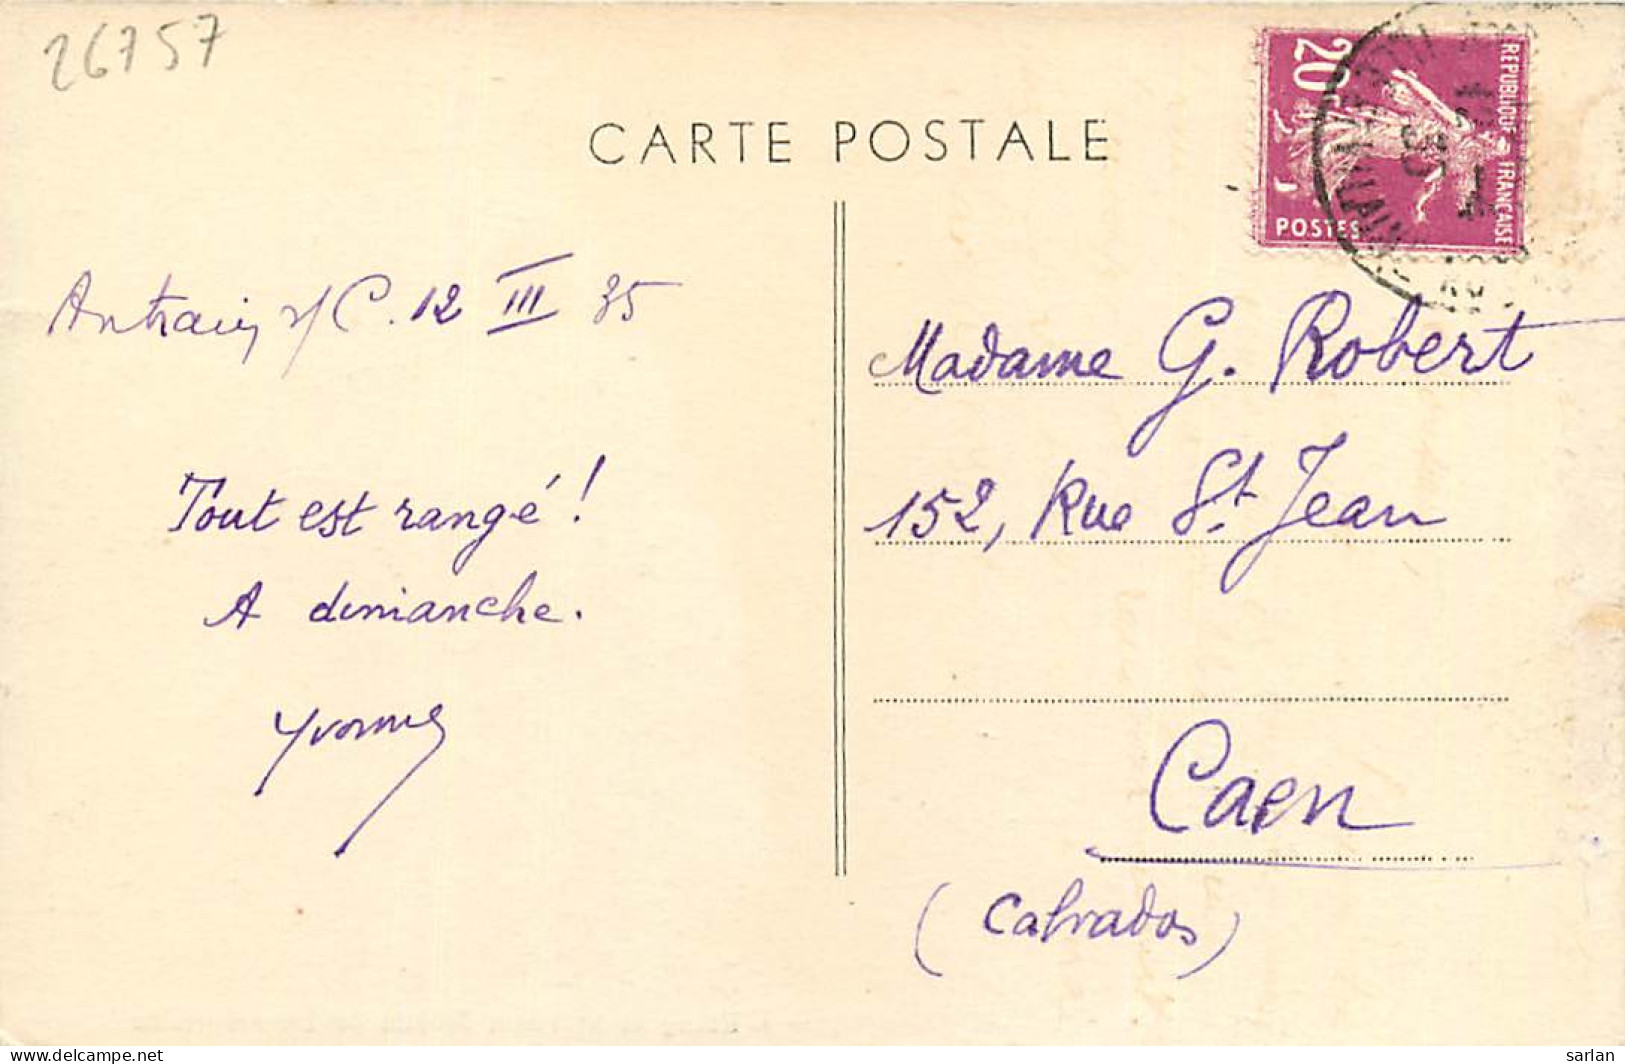 26757
CARTE POSTALE
20c
REPUBLIQUE FRANÇAISE
POSTES
Antrain s/C. 12 III 35
Tout est rangé !
A dimanche.
Yvonne
Madame G. Robert
152, Rue St Jean
Caen
(Calvados)
www.delcampe.net
sarlan